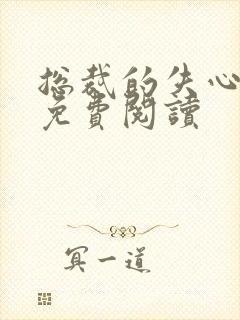 总裁的失心
免費閱讀
冥一道